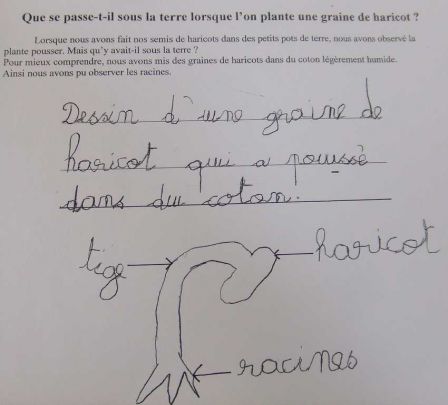 Que se passe-t-il sous la terre lorsque l'on plante une graine de haricot ?
Lorsque nous avons fait nos semis de haricots dans des petits pots de terre, nous avons observé la
plante pousser. Mais qu'y avait-il sous la terre ?
Pour mieux comprendre, nous avons mis des graines de haricots dans du coton légèrement humide.
Ainsi nous avons pu observer les racines.
Dessin d'une graine de
haricot qui a poussé
dans du coton.
tige
haricot
racines